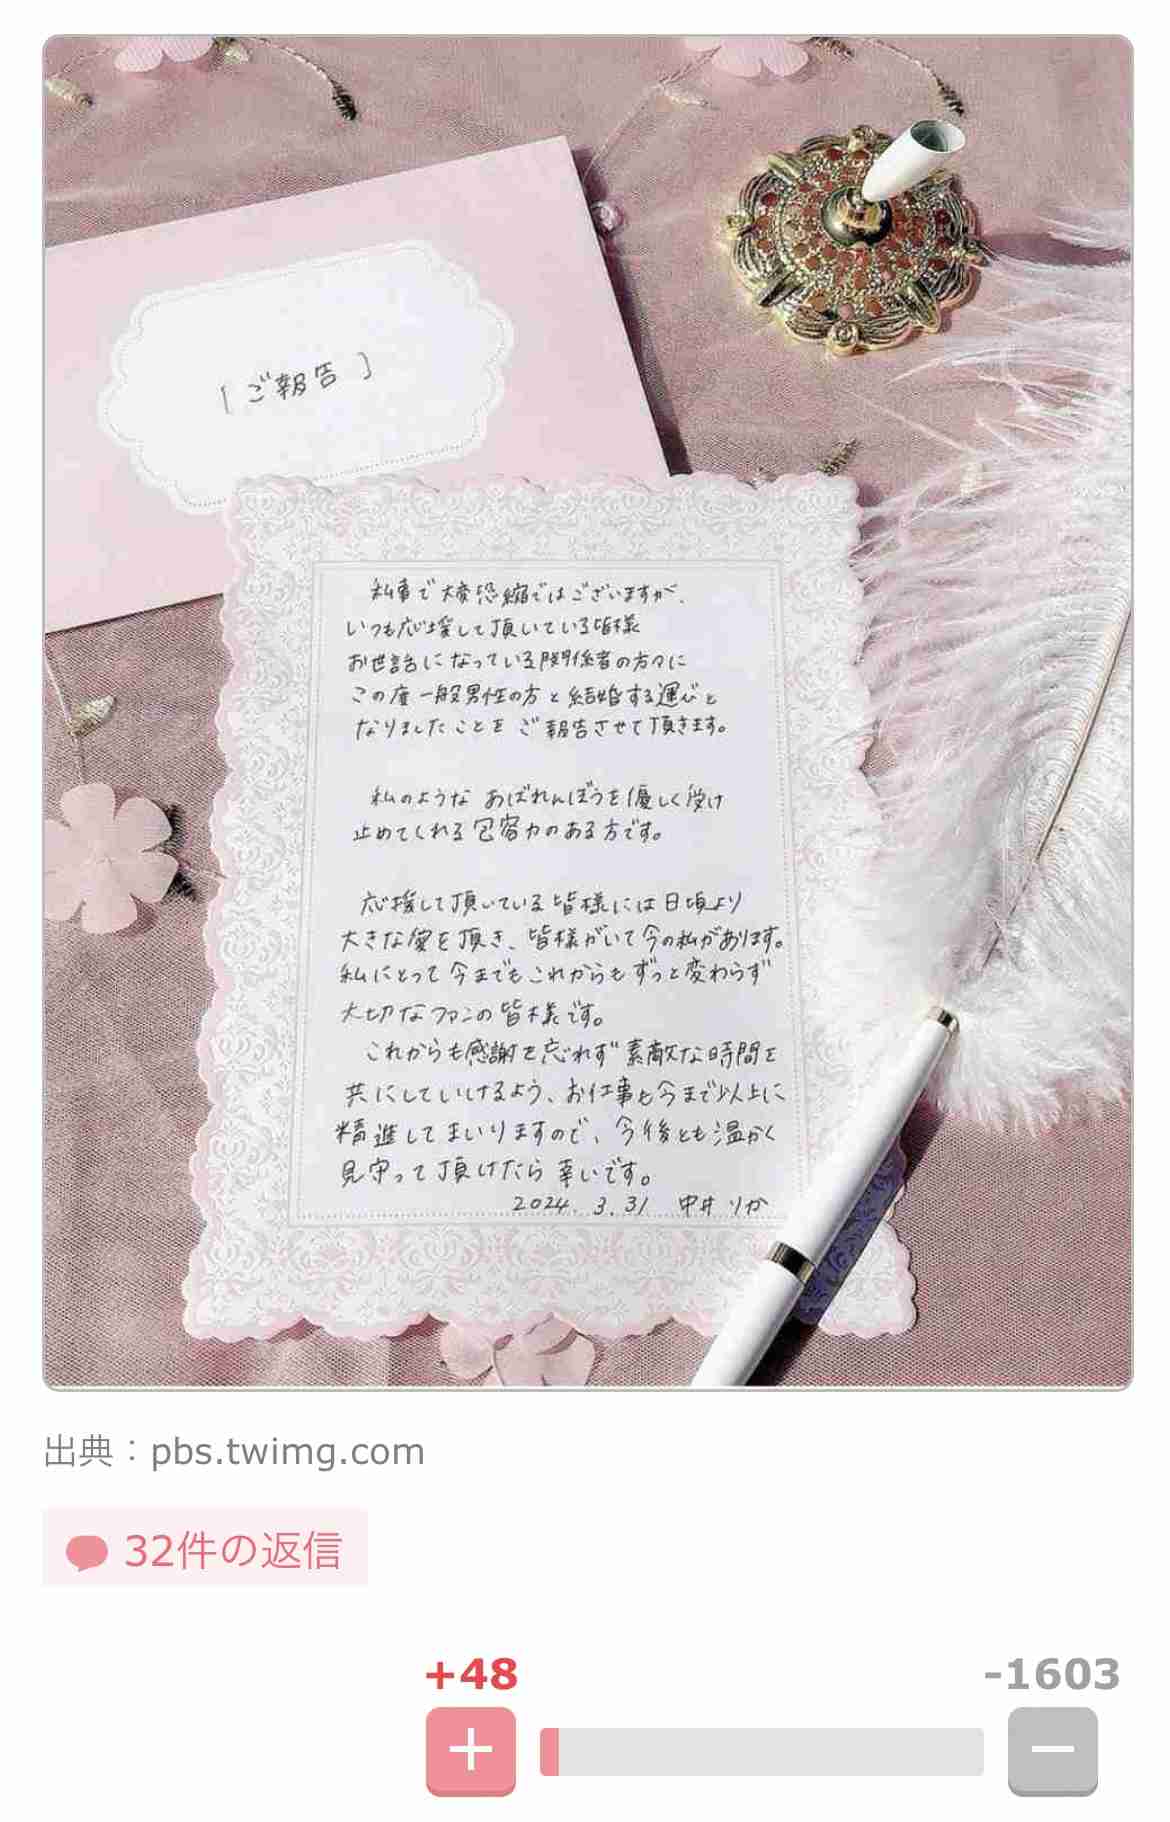 「ご報告」
私事で大変恐縮ではございますが、
いつも応援して頂いている皆様
お世話になっている関係者の方々に
この度一般男性の方と結婚する運びと
なりましたことをご報告させて頂きます。
私のようなあばれんぼうを優しく受け
止めてくれる包容力のある方です。
応援して頂いている皆様には日頃より
大きな愛を頂き、皆様がいて今の私があります。
私にとって今までもこれからもずっと変わらず
大切なファンの皆様です。
これからも感謝を忘れず素敵な時間を
共にしていけるよう、お仕事も今まで以上に
精進してまいりますので、今後とも温かく
見守って頂けたら幸いです。
2024. 3. 31 中井りか
出典：pbs.twimg.com
32件の返信
+48
-1603